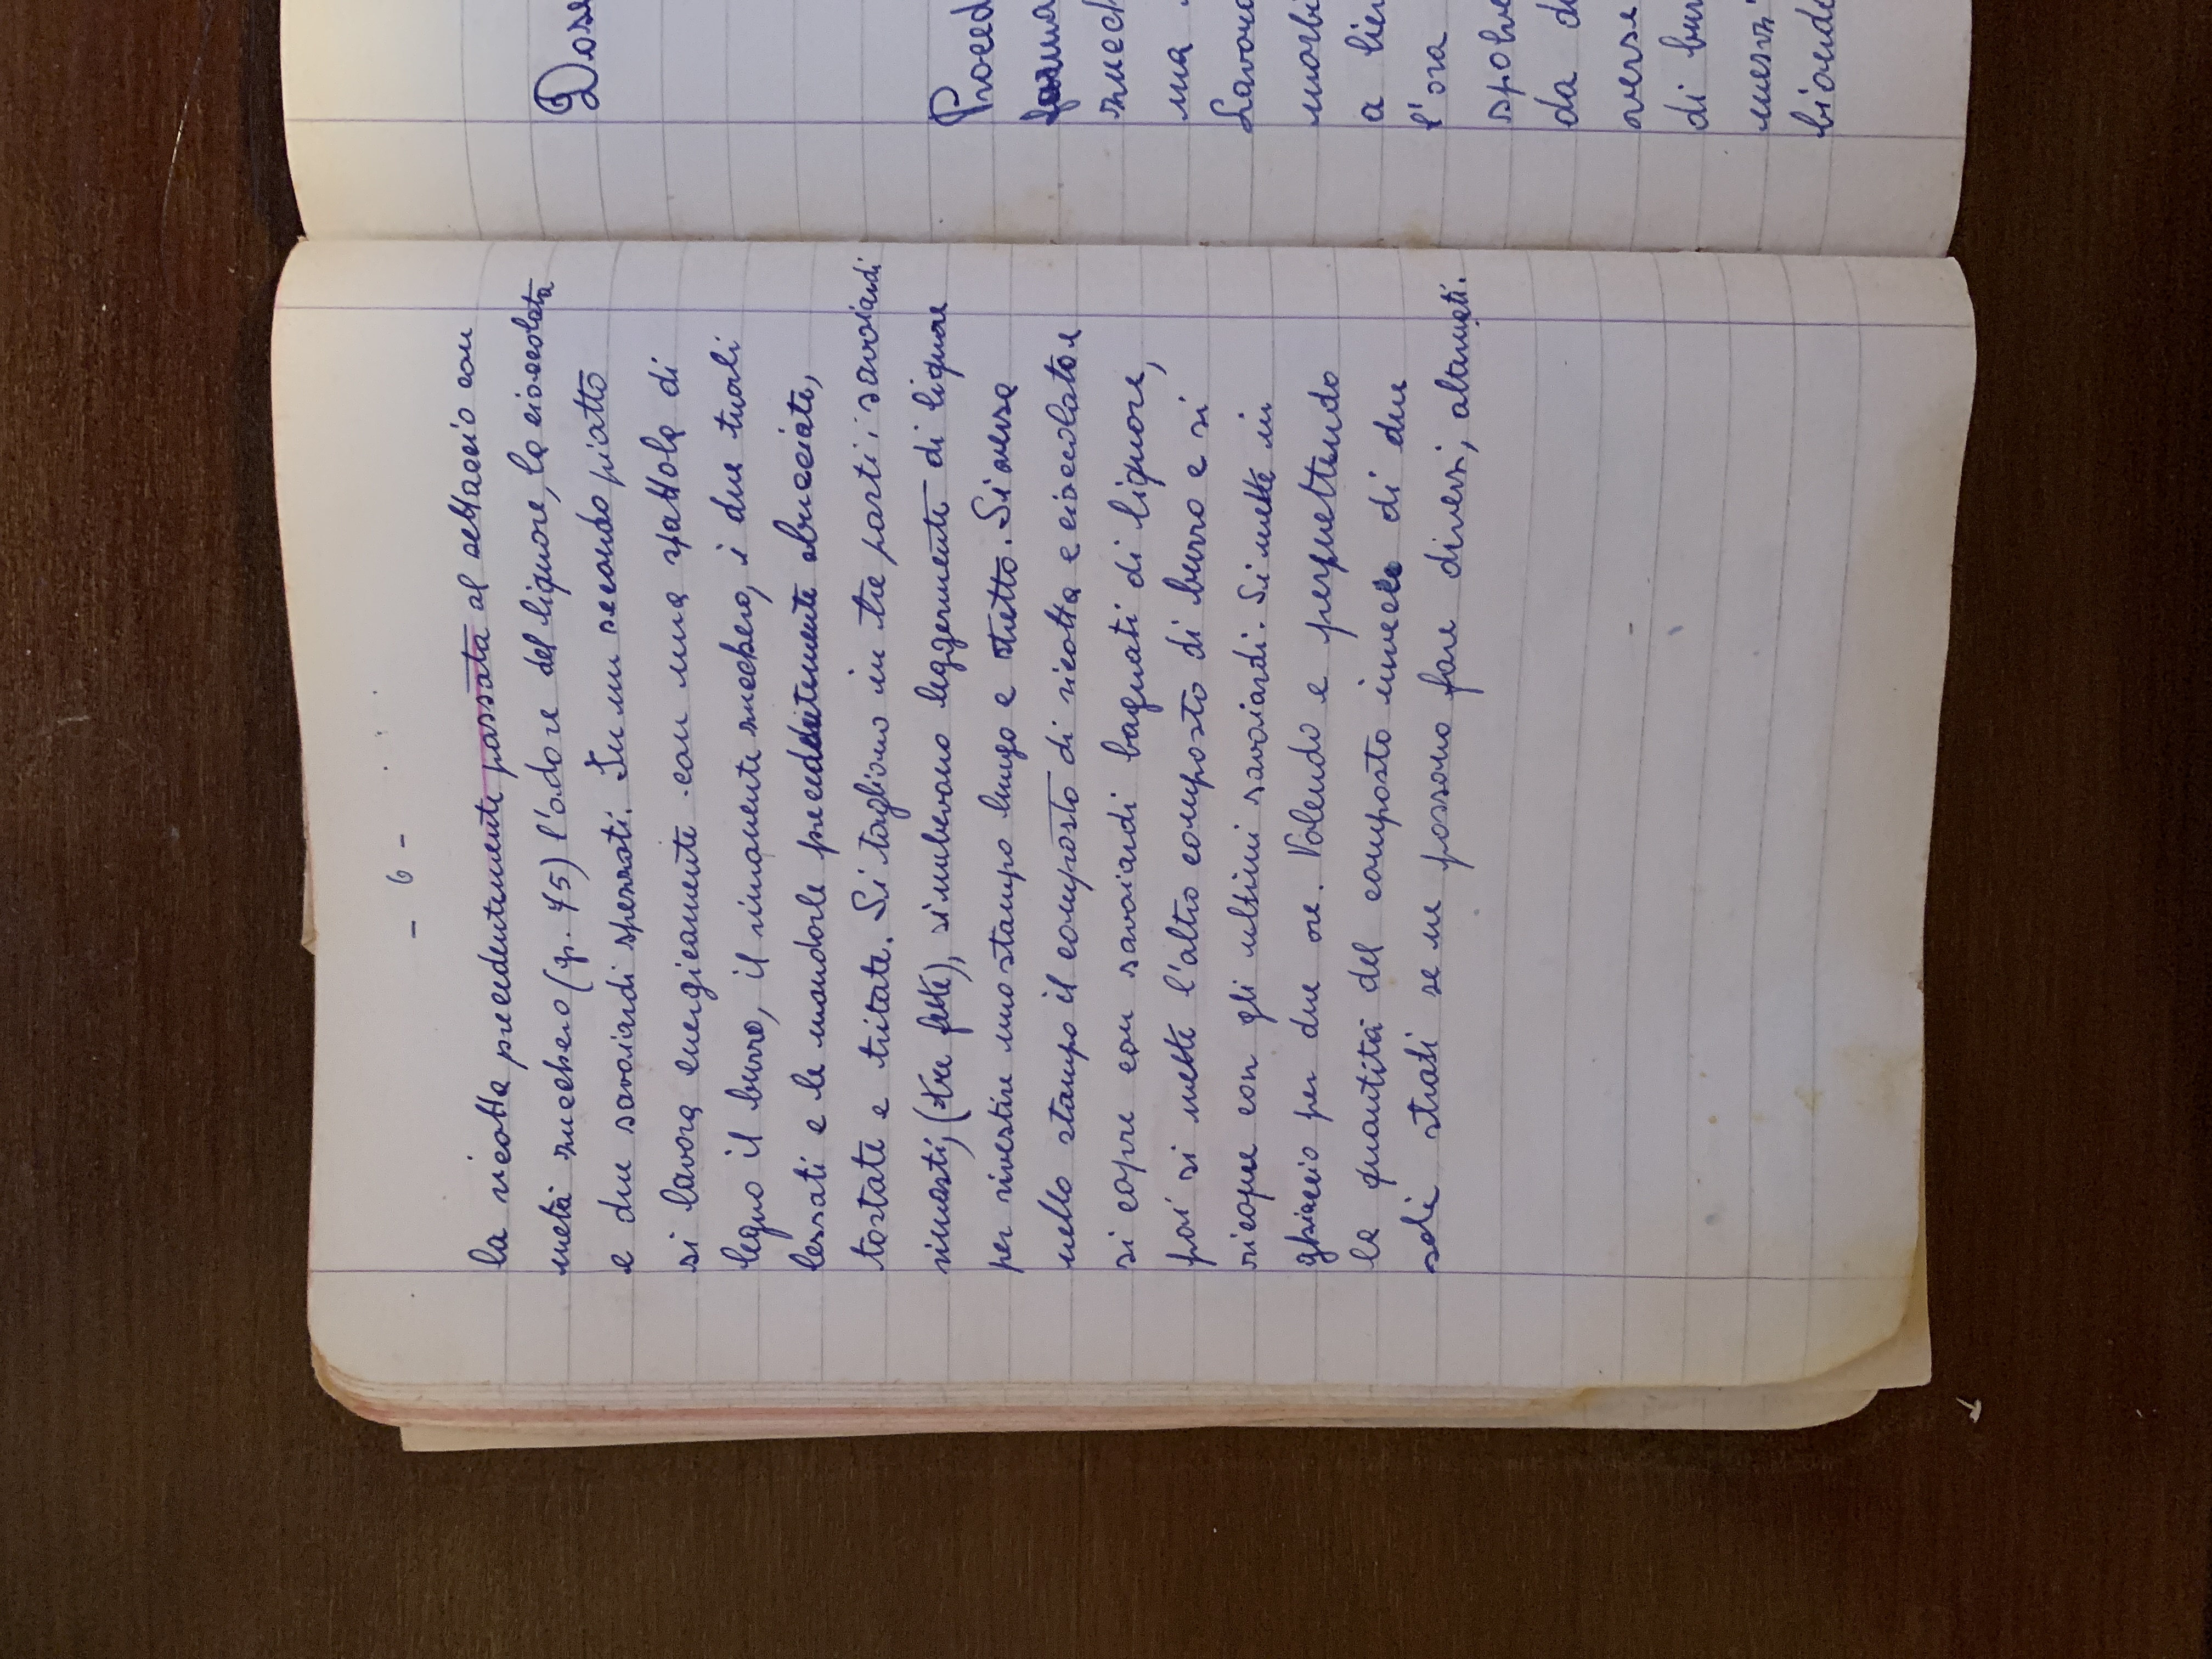 - 6 -
la ricotta precedentemente passata al settaccio con
metà zucchero (gr. 75) l'odore del liquore, la cioccolata
e due savoiardi spezzati. In un secondo piatto
si lavora energicamente con una spattola di
legno il burro, il rimanente zucchero, i due tuorli
lessati e le mandorle precedentemente sbucciate,
tostate e tritate. Si tagliano in tre parti i savoiardi
rimasti, (tre fette), si imbevano leggermente di liquore
per rivestire uno stampo lungo e stretto. Si versa
nello stampo il composto di ricotta e cioccolato e
si copre con savoiardi bagnati di liquore,
poi si mette l'altro composto di burro e si
ricopre con gli ultimi savoiardi. Si mette in
ghiaccio per due ore. Volendo e permettendo
la quantità del composto invece di due
soli strati se ne possono fare diversi, alternati.
Dose
Proced
forma
zucch
una
Lavora
morbi
a lie
l'ora
spolve
da d
verse
di bur
mezz'
biondo